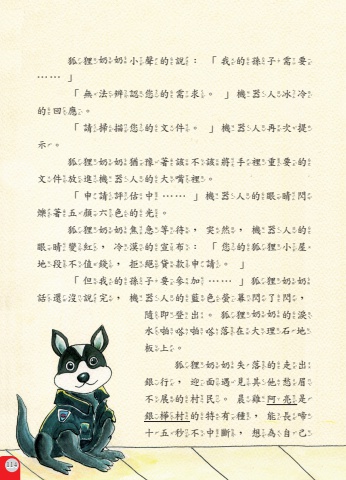 狐狸奶奶小聲的說：「我的孫子需要
……」
「無法辨認您的需求。」機器人冰冷
的回應。
「請掃描您的文件。」機器人再次提
示。
狐狸奶奶猶豫著該不該將手裡重要的
文件放進機器人的大嘴裡。
「申請評估中……」機器人的眼睛閃
爍著五顏六色的光。
狐狸奶奶焦急等待，突然，機器人的
眼睛變紅，冷漠的宣布：「您的狐狸小屋
地段不值錢，拒絕貸款申請。」
「但我的孫子要參加……」狐狸奶奶
話還沒說完，機器人的藍色螢幕閃了閃，
隨即登出。狐狸奶奶的淚
水啪嗒啪嗒落在大理石地
板上。
狐狸奶奶失落的走出
銀行，迎面遇見其他愁眉
不展的村民。晨雞阿亮是
銀樺村的特有種，能長啼
十五秒不中斷，想為自己
114